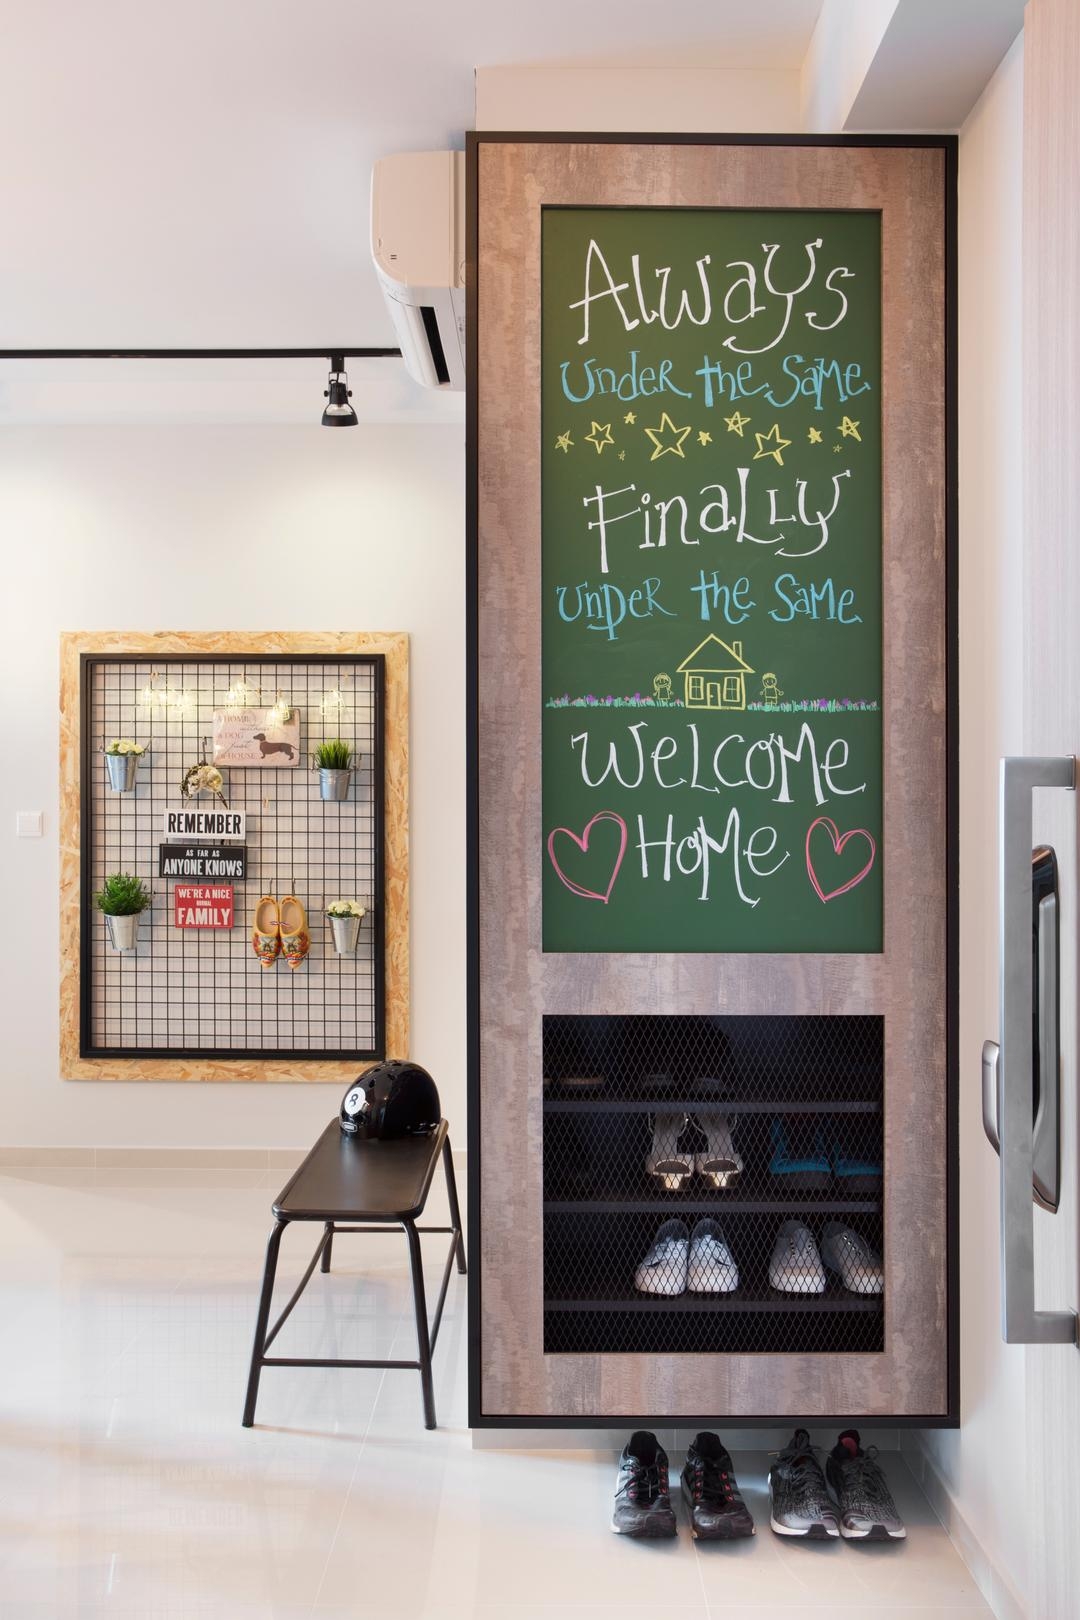 Always
Under the Same
Finally
Under the Same
Welcome
Home
A HOME
without
A DOG
just
A HOUSE
REMEMBER
AS FAR AS
ANYONE KNOWS
WE'RE A NICE
NORMAL
FAMILY
8